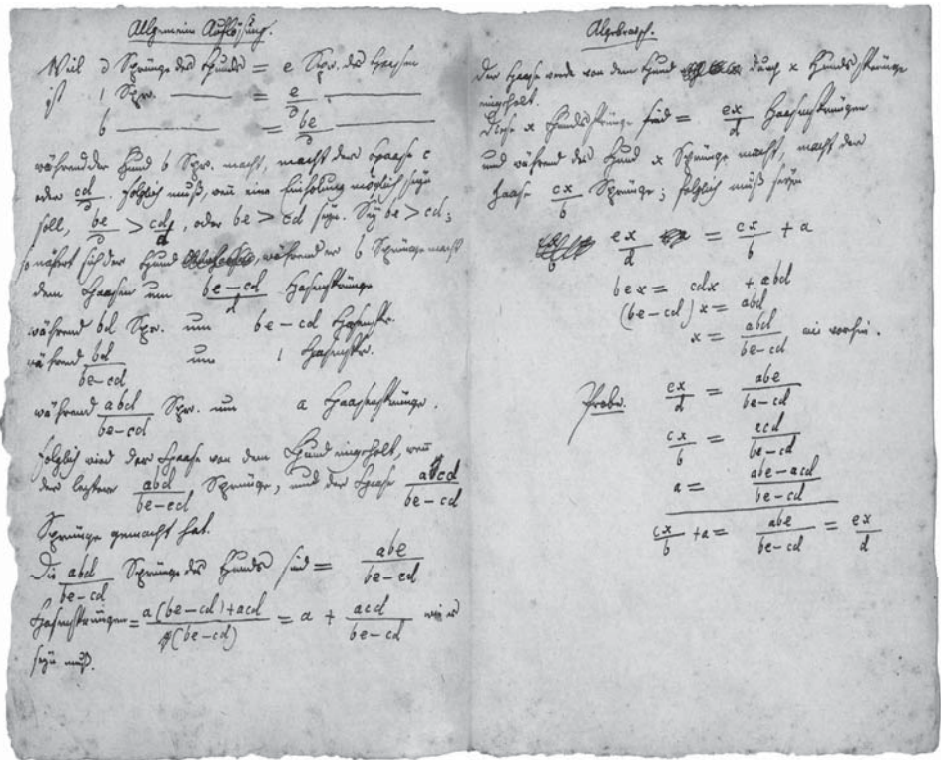 Allgemeine Auflösung.
Weil d Sprünge des Hunds = e Spr. des Haasen
ist 1 Spr. ——— = e/d ———
b ——— = be/d ———
während der Hund b Spr. macht, macht der Haase c
oder cd/d. Folglich muß, wenn eine Einholung möglich seyn
soll, be/d > cd/d, oder be > cd seyn. Sey be > cd;
so nähert sich der Hund, während er b Sprünge macht
dem Haasen um (be-cd)/d Hasensprünge
während bd Spr. um be-cd Hasenspr.
während bd/(be-cd) um 1 Hasenspr.
während abd/(be-cd) Spr. um a Haasensprünge.
Folglich wird der Haase von dem Hund eingeholt, wenn
der letztere abd/(be-cd) Sprünge, und der Haase acd/(be-cd)
Sprünge gemacht hat.
Die abd/(be-cd) Sprünge des Hunds sind = abe/(be-cd)
Hasensprüngen = (a(be-cd)+acd)/(be-cd) = a + acd/(be-cd) wie es
seyn muß.
Algebraisch.
Der Haase werde von dem Hund durch x Hundssprünge
eingeholt.
Diese x Hundssprünge sind = ex/d Haasensprüngen
und während der Hund x Sprünge macht, macht der
Haase cx/b Sprünge; folglich muß seyn
ex/d = cx/b + a
bex = cdx + abd
(be-cd)x = abd
x = abd/(be-cd) wie vorhin.
Probe. ex/d = abe/(be-cd)
cx/b = acd/(be-cd)
a = (abe-acd)/(be-cd)
cx/b + a = abe/(be-cd) = ex/d